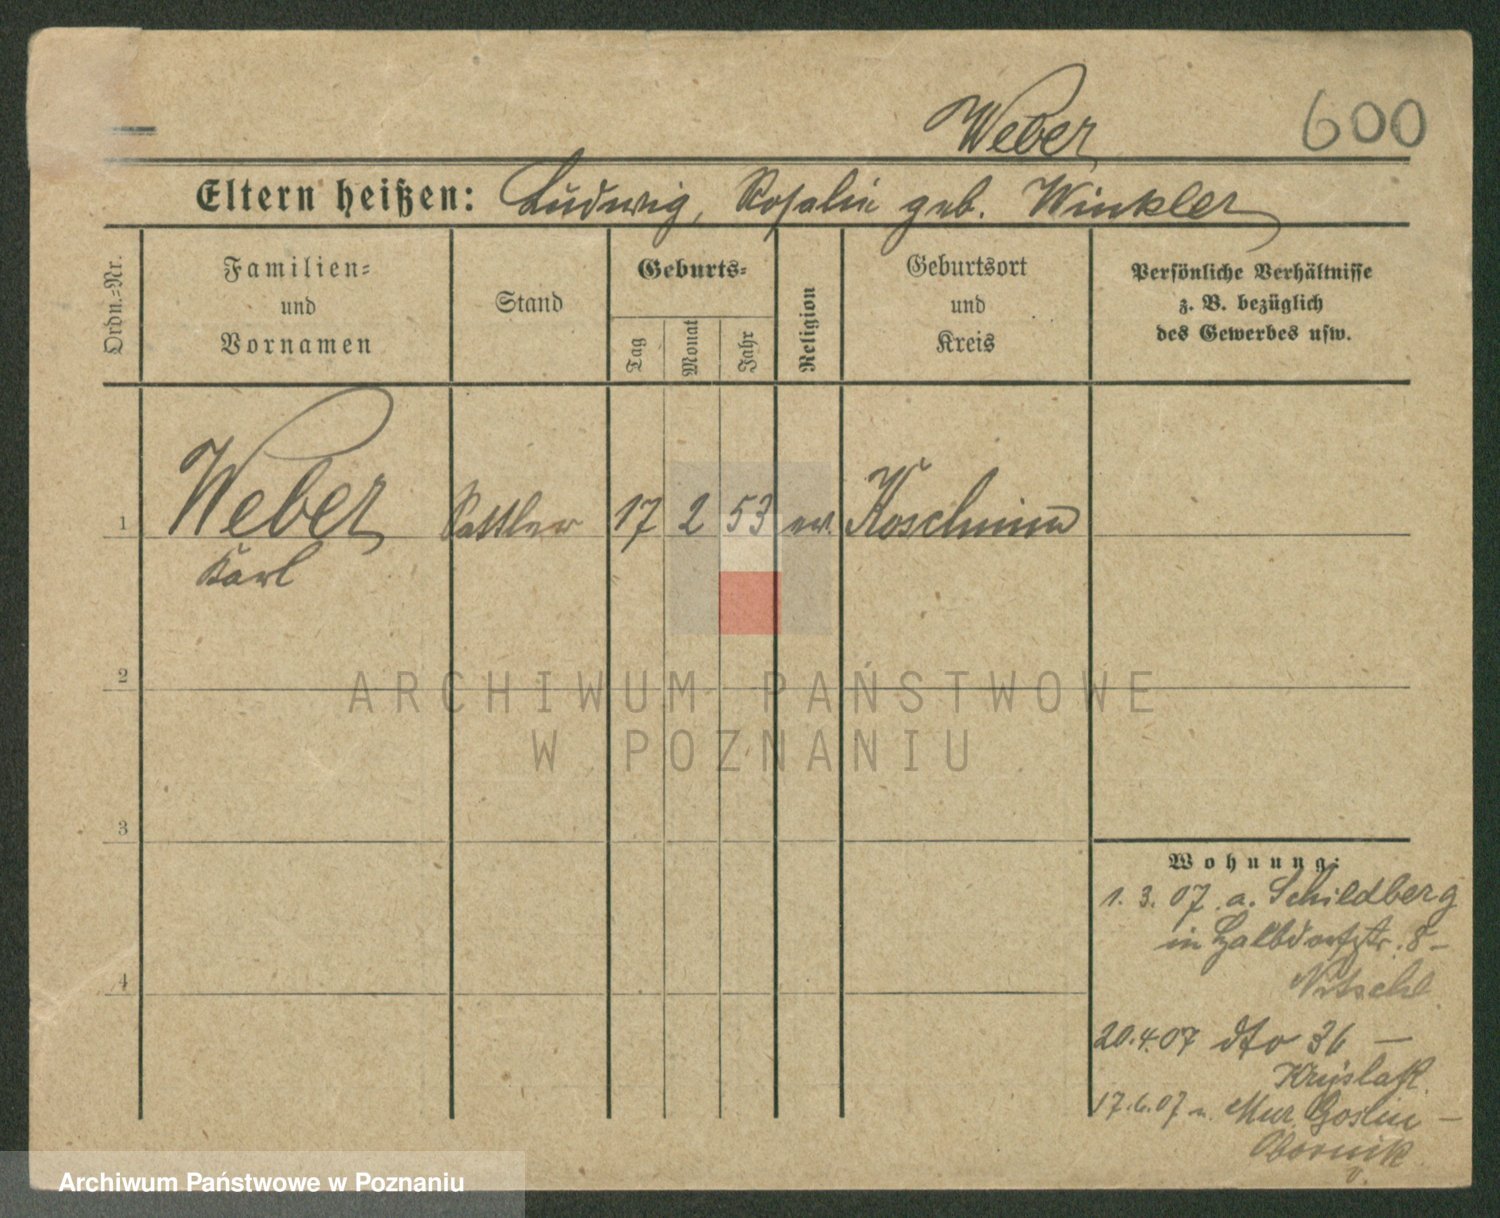 Weber
600
Eltern heißen: Ludwig, Rosalie geb. Winkler
Ordn.-Nr.
Familien-
und
Vornamen
Stand
Geburts-
Tag
Monat
Jahr
Religion
Geburtsort
und
Kreis
Persönliche Verhältnisse
z. B. bezüglich
des Gewerbes usw.
1
Weber
Karl
Sattler
17
2
53
ev.
Koschmin
2
ARCHIWUM PAŃSTWOWE
W POZNANIU
3
4
Wohnung:
1. 3. 07 a. Schildberg
in Halbdorfstr. 8 –
20.4.07 dto 36 –
17.6.07 n. Mur. Goslin –
Obornik
Archiwum Państwowe w Poznaniu